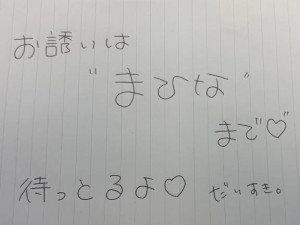 お誘いは
"まひな"
まで♡
待っとるよ♡ だいすき。